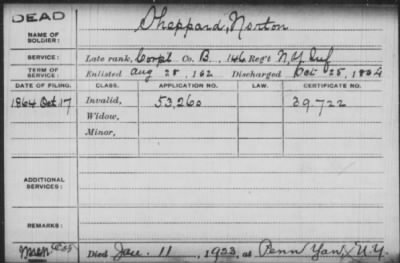 DEAD
NAME OF SOLDIER: Sheppard, Norton
SERVICE: Late rank, Corpl Co. B, 146 Reg't N.Y. Inf
TERM OF SERVICE: Enlisted Aug 28, 162 Discharged Oct 25, 1864
DATE OF FILING. CLASS. APPLICATION NO. LAW. CERTIFICATE NO.
1864 Oct 17 Invalid, 53,260 39.722
Widow,
Minor,
ADDITIONAL SERVICES:
REMARKS:
Died Jan. 11, 1923, at Penn Yan, N.Y.